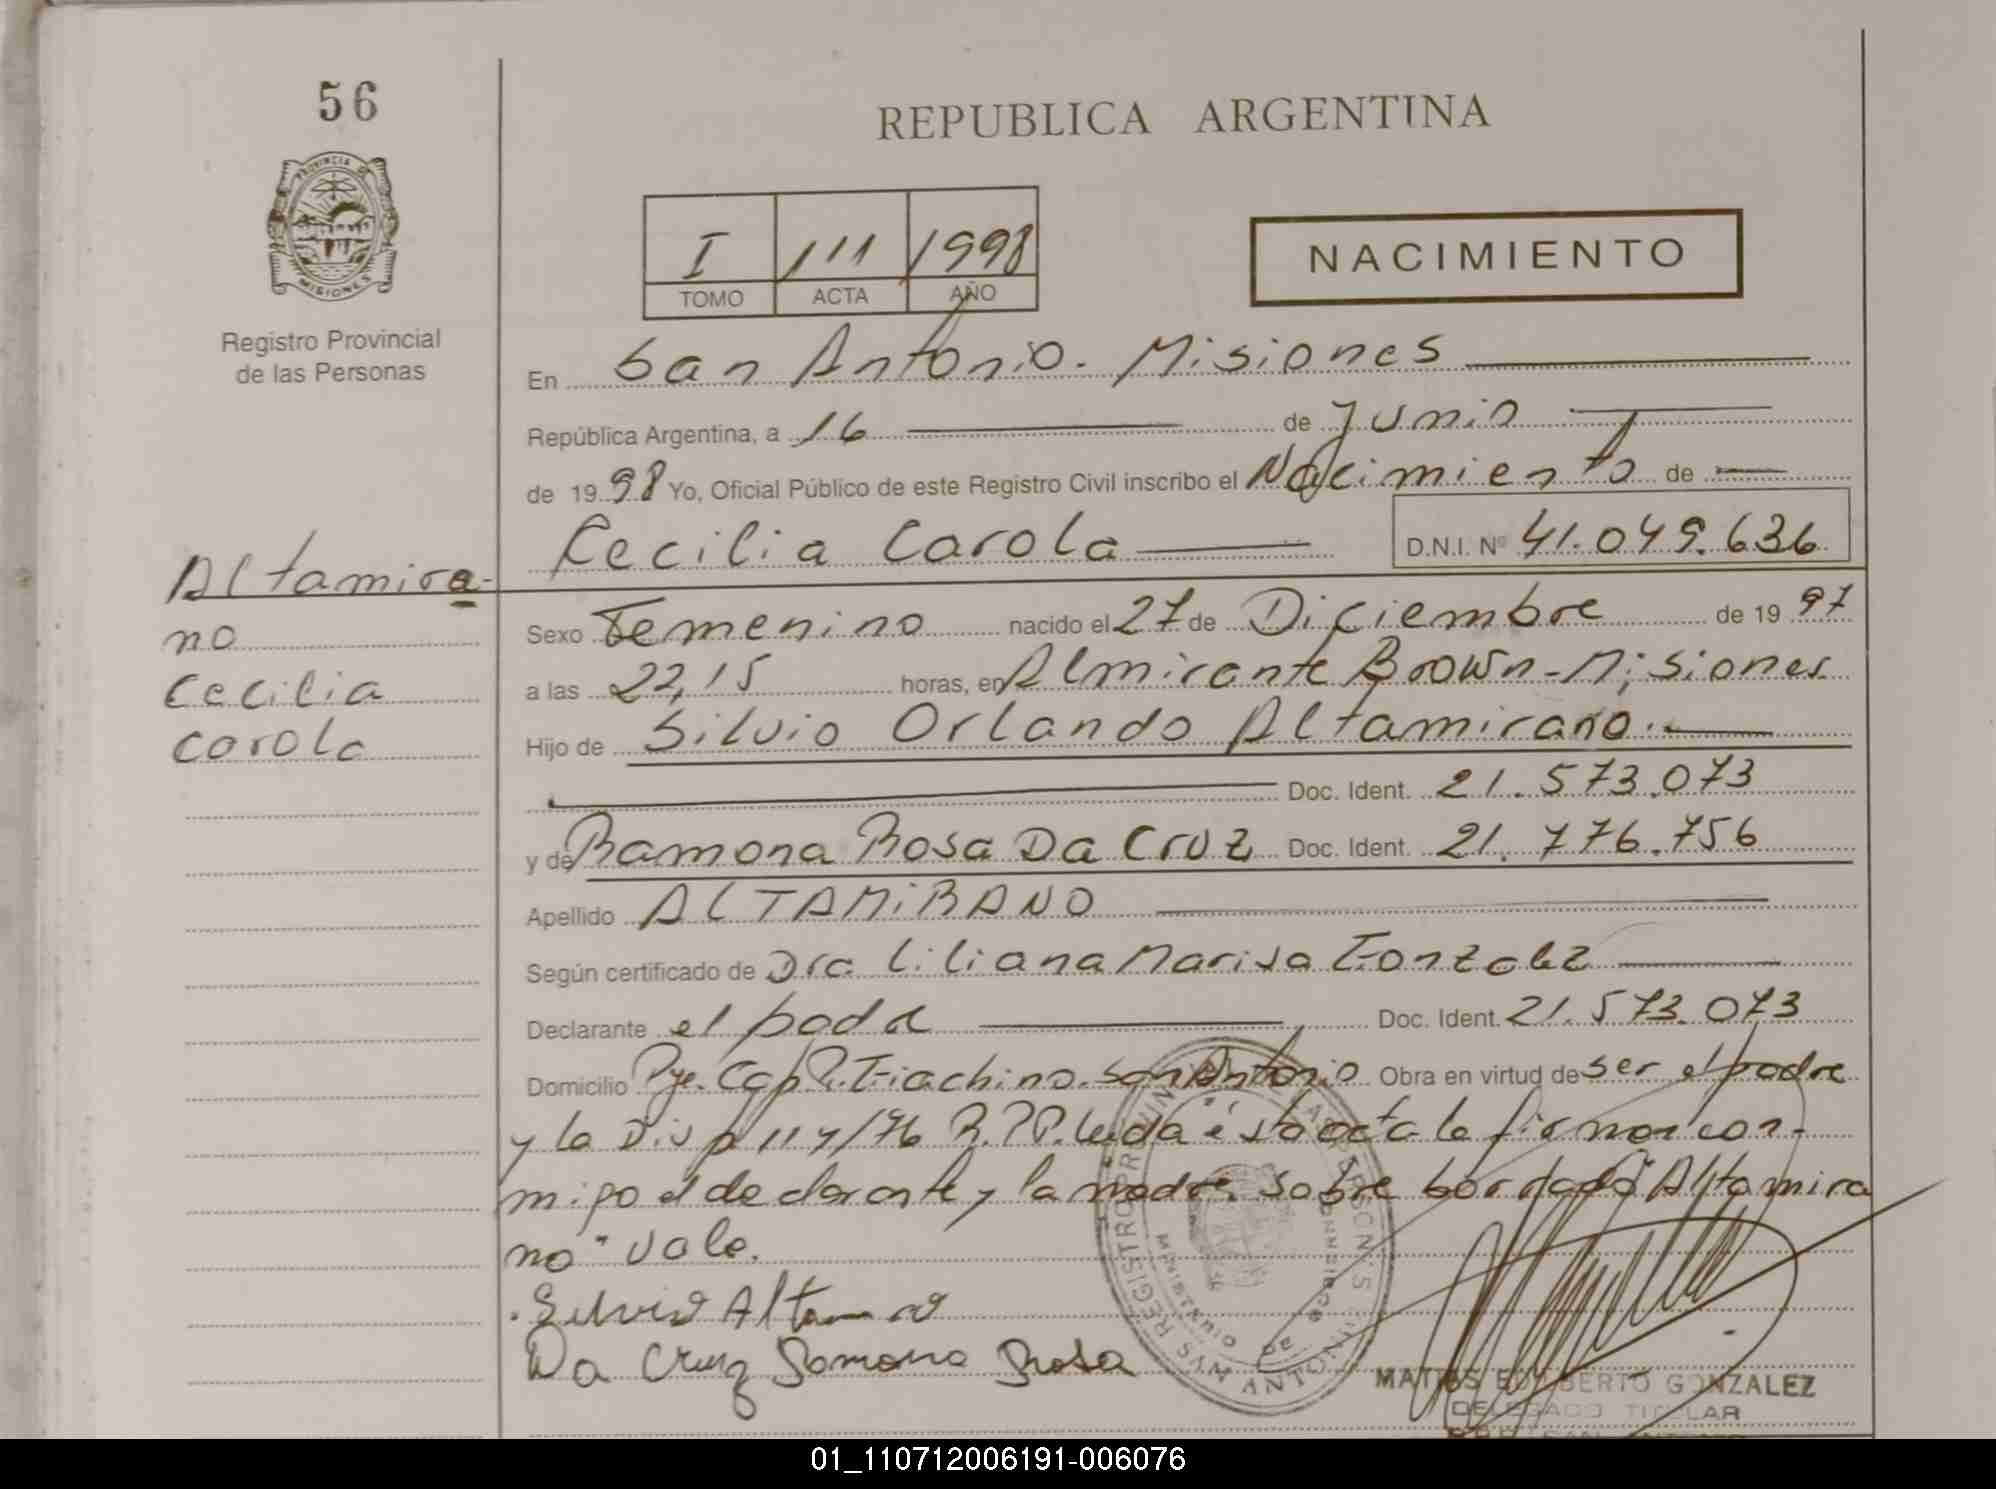 56
REPUBLICA ARGENTINA
PROVINCIA DE
MISIONES
Registro Provincial
de las Personas
I 111 1998
TOMO ACTA AÑO
NACIMIENTO
En San Antonio - Misiones
República Argentina, a 16 de Junio
de 1998 Yo, Oficial Público de este Registro Civil inscribo el Nacimiento de
Cecilia Carola D.N.I. Nº 41.049.636
Altamira-
no
Cecilia
Carola
Sexo Femenino nacido el 27 de Diciembre de 1997
a las 22,15 horas, en Almirante Brown - Misiones
Hijo de Silvio Orlando Altamirano.
Doc. Ident. 21.573.073
y de Ramona Rosa Da Cruz Doc. Ident. 21.776.756
Apellido ALTAMIRANO
Según certificado de Dra. Liliana Marisa Gonzalez
Declarante el padre Doc. Ident. 21.573.073
Domicilio Pje. Cap. Giachino. San Antonio Obra en virtud de ser el padre
y la Disp 117/96 R.P.P. leida ésta acta la firman con-
migo el declarante y la madre. Sobre bordado "Altamira
no" vale.
Silvio Altamirano
Da Cruz Ramona Rosa
REGISTRO PROVINCIAL
MINISTERIO DE
SAN ANTONIO
MATIAS EDILBERTO GONZALEZ
DELEGADO TITULAR
01_110712006191-006076